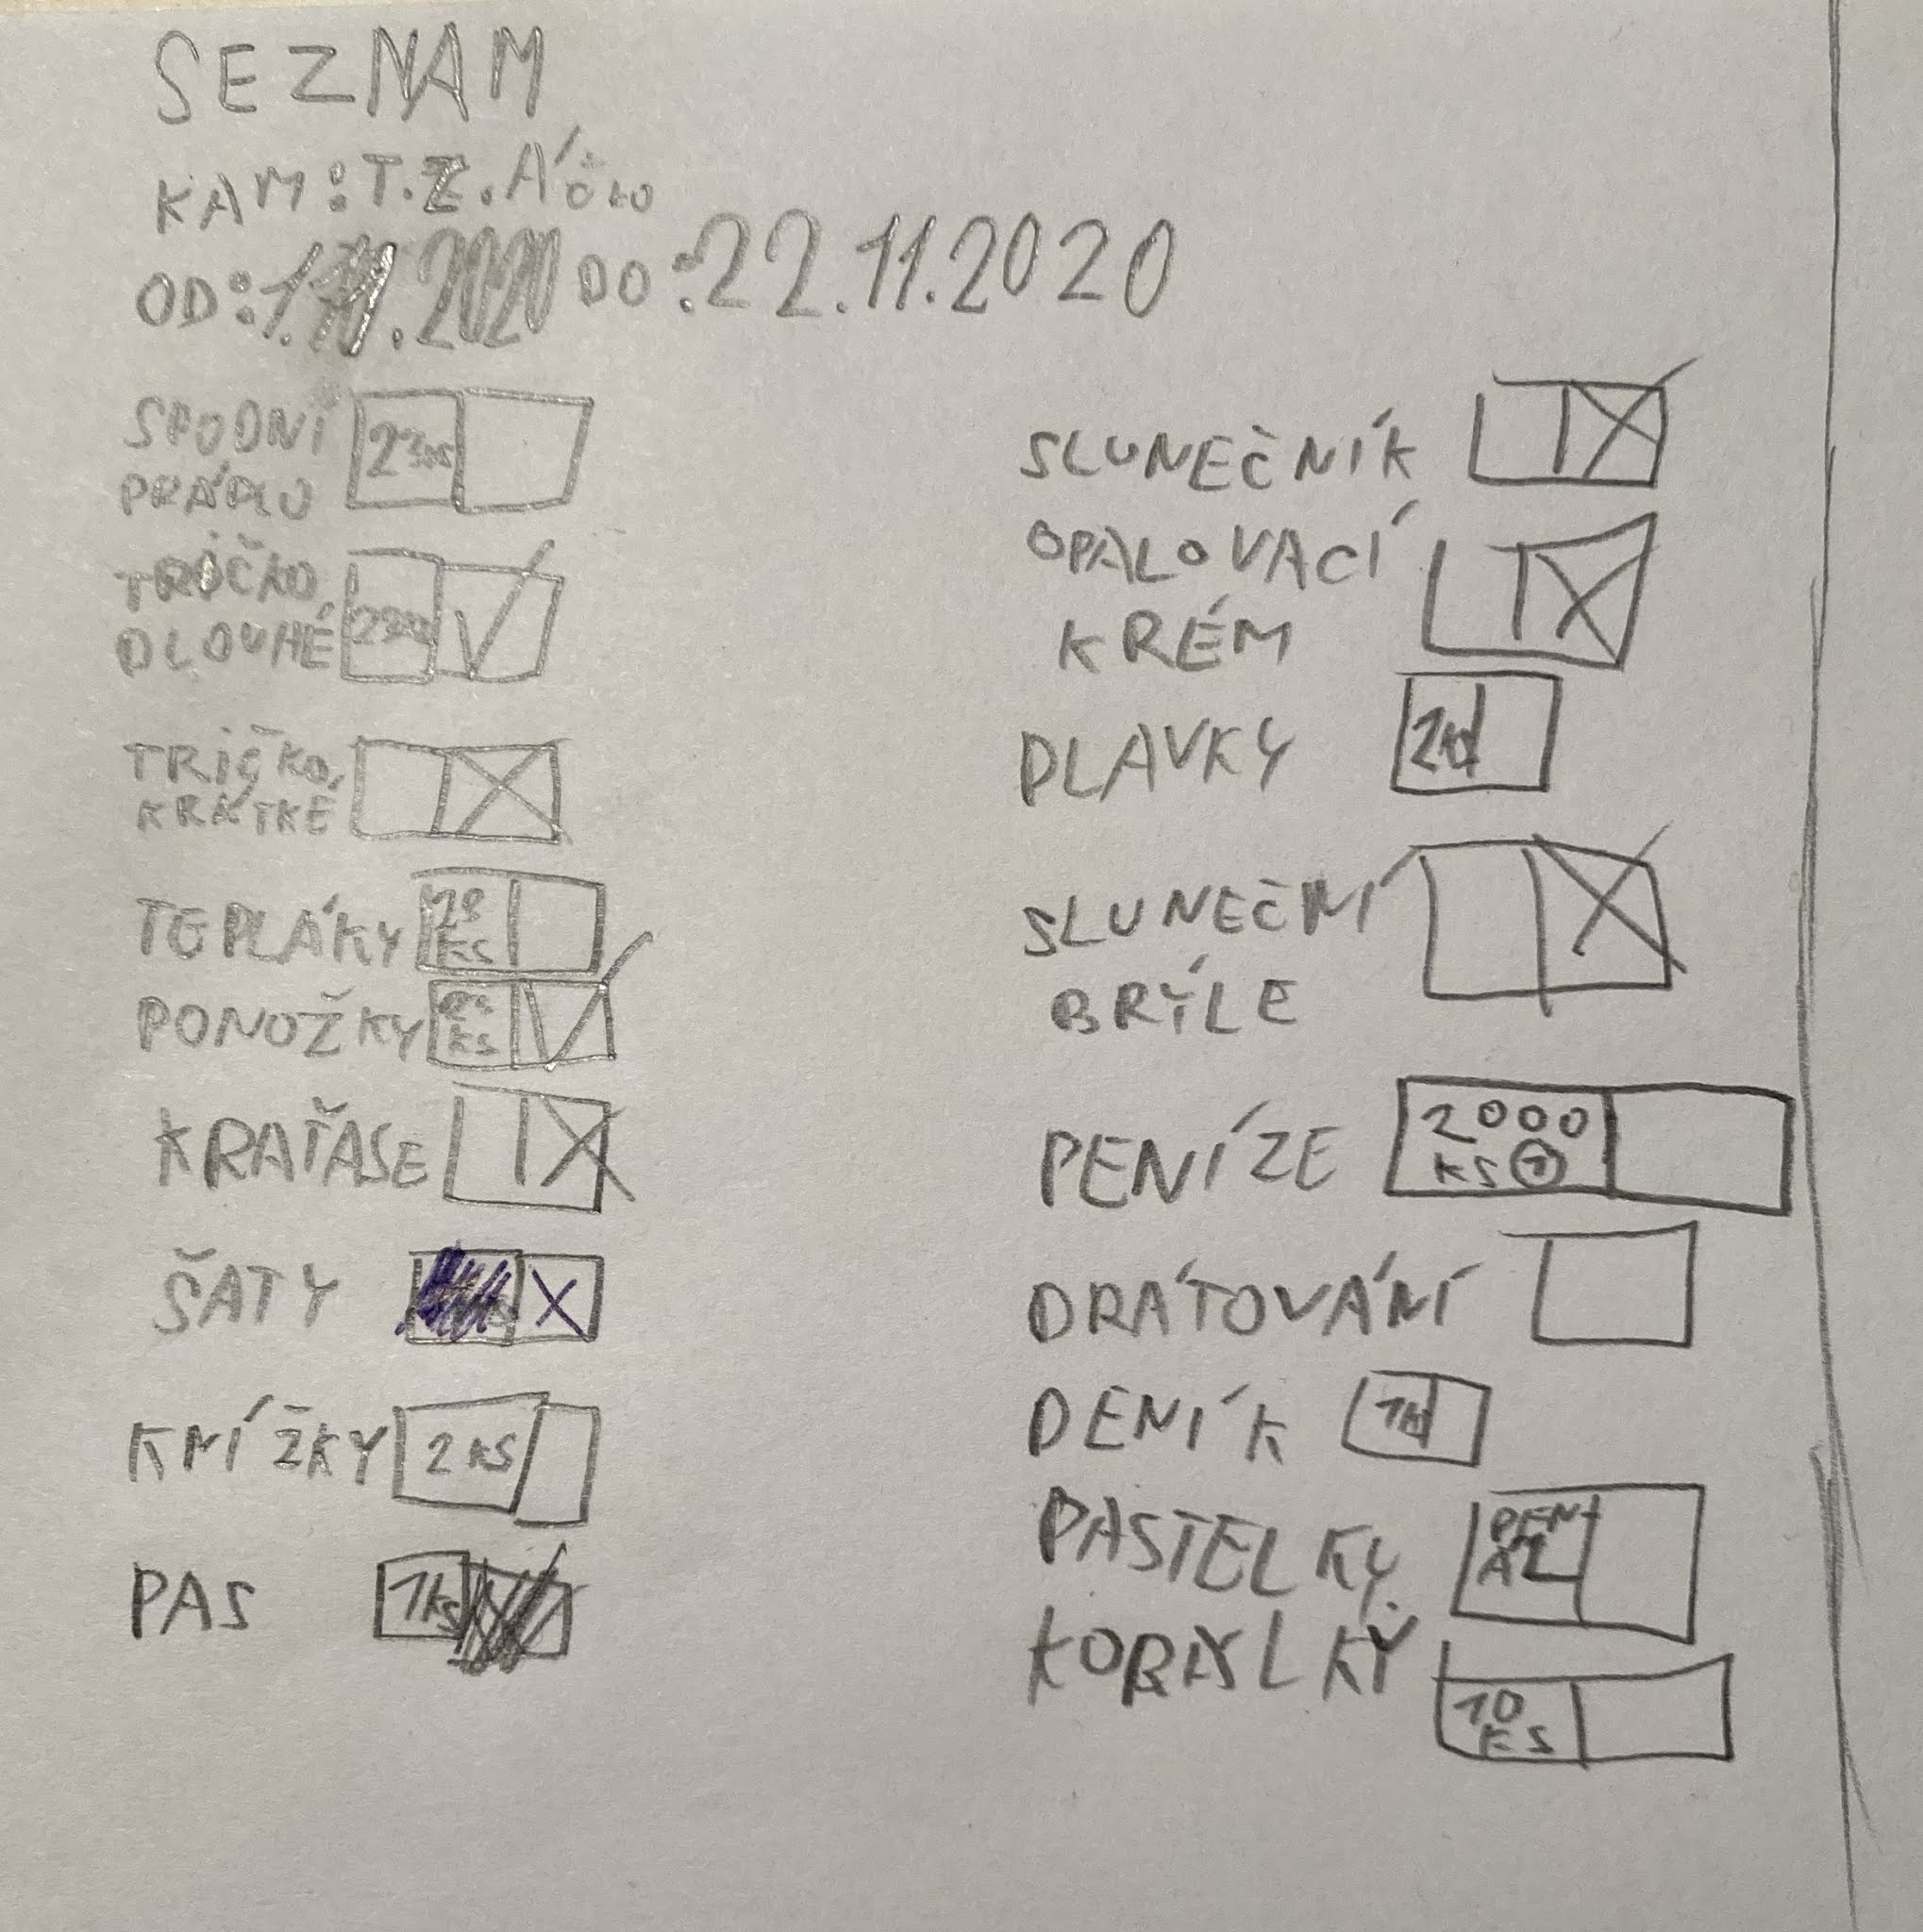 SEZNAM
KAM: T.Z. Áčko
OD: 1.11.2020 DO: 22.11.2020
SPODNÍ 23ks
PRÁDLO
TRIČKO
DLOUHÉ
TRIČKO
KRÁTKÉ
TEPLÁKY
KS
PONOŽKY
KS
KRAŤASE
ŠATY
KNÍŽKY 2 KS
PAS 1ks
SLUNEČNÍK
OPALOVACÍ
KRÉM
PLAVKY
SLUNEČNÍ
BRÝLE
PENÍZE 2000
KS
DRÁTOVÁNÍ
DENÍK
PASTELKY PEN
ÁL
KORÁLKY
10
KS